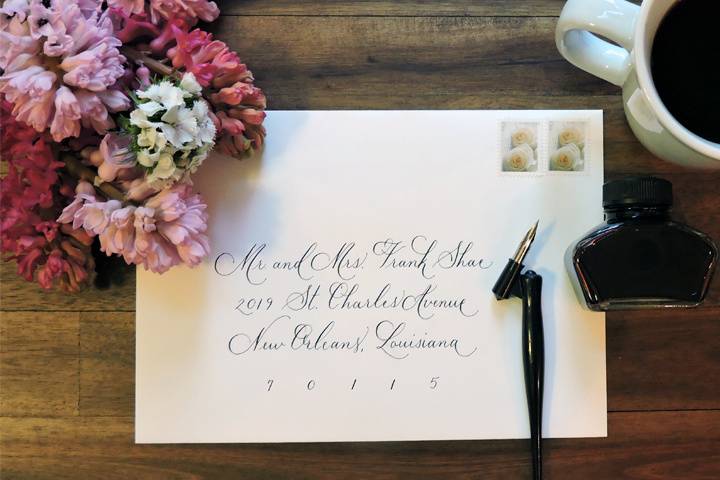 Mr and Mrs. Frank Shae
2019 St. Charles Avenue
New Orleans, Louisiana
7 0 1 1 5